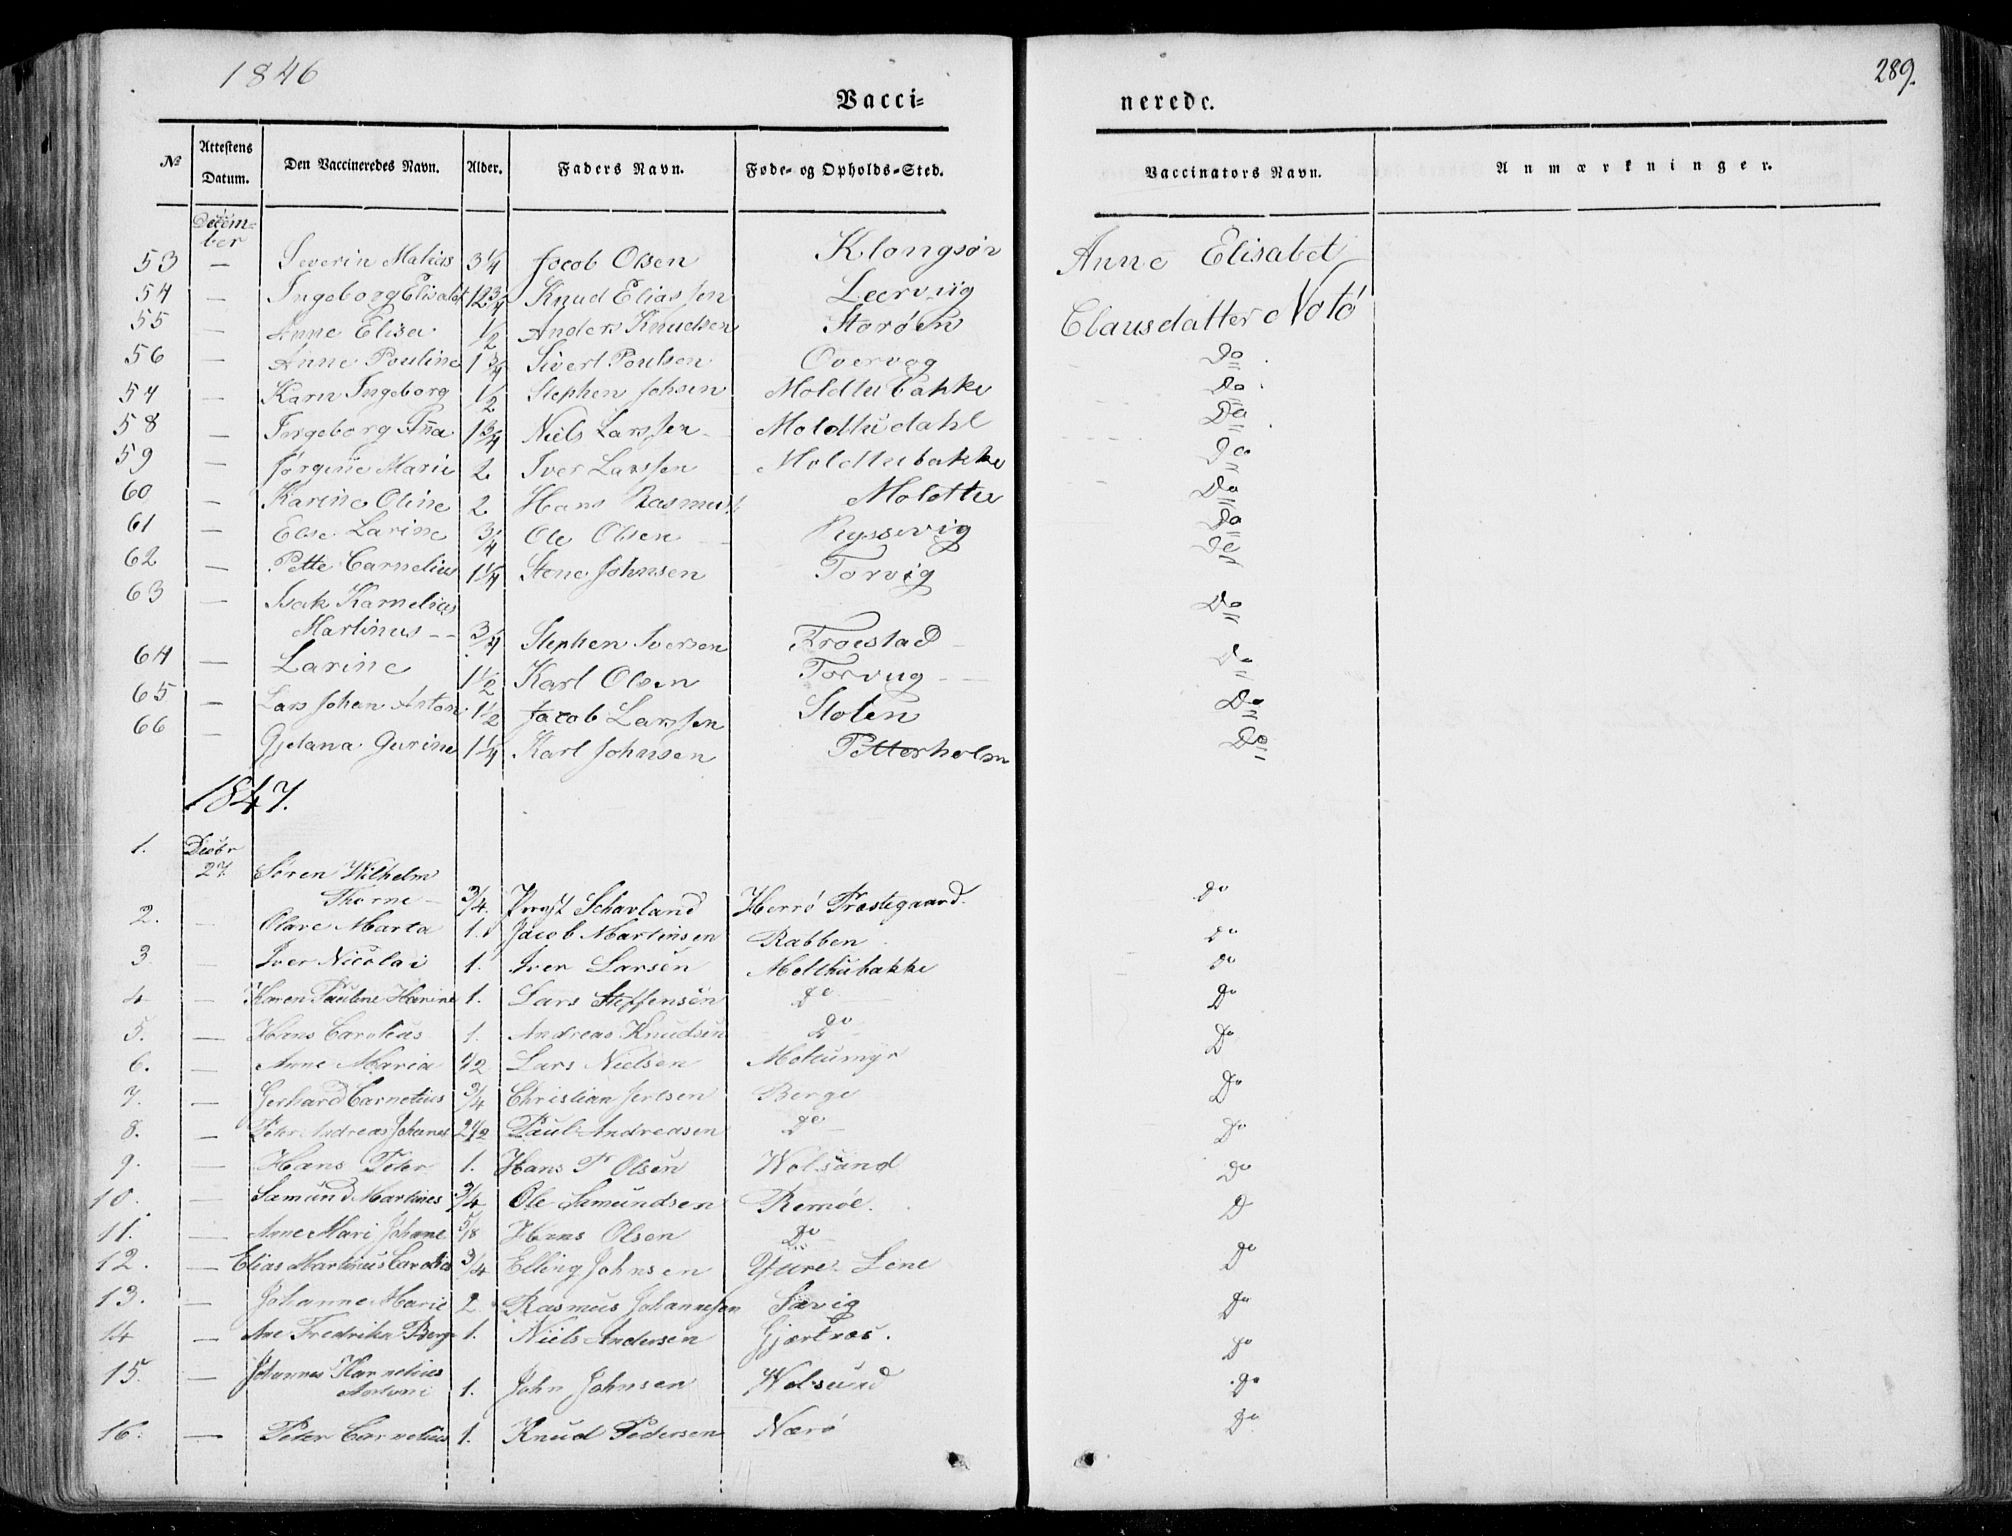 1846
289.
Vacci=
nerede.
№ Attestens Datum. Den Vaccineredes Navn. Alder. Faders Navn. Føde- og Opholds-Sted. Vaccinators Navn. Anmærkninger.
Decem-
ber
53 — Severin Matias 3¼ Jocob Olsen Klongsør Anne Elisabet
54 — Ingeborg Elisabet 12¾ Knud Eliassen Leerviig
55 — Anne Elisa ½ Anders Knudsen Storøen Clausdatter Notø
56 — Anne Pouline 1¾ Sivert Poulsen Overvog Do
54 — Karn Ingeborg ½ Stephen Johsen Moldtubakke Do
58 — Ingeborg Ana 1¾ Niels Larssen Moldtudahl Do
59 — Jørgine Marie 2 Iver Larssen Moldtubakke Do
60 — Karine Oline 2 Hans Rasmus Moldtu Do
61 — Else Larine ¾ Ole Olsen Do
62 — Pette Carnelius 1¼ Stene Johnsen Torvig Do
63 — Isak Karnelius
Martinus ¾ Stephen Iversen Froestad Do
64 — Larine 1½ Karl Olsen Torvug Do
65 — Lars Johan Anton 1½ Jacob Larssen Stolen Do
66 — Gjelana Gurine 1¼ Karl Johnsen Petterholm Do
1847.
1. Decbr
27 Søren Wilhelm
Thorne ¾ Provst Schavland Herrø Prestegaard. Do
2. Olave Marta 1. Jacob Martinsen Rabben Do
3 — Iver Nicolai 1. Iver Larsen Moltubakke Do
4 — Karen Pauline Harine 1. Lars Steffensen Do Do
5. — Hans Carolius 1. Andreas Knudsen Do Do
6. — Anne Maria ½ Lars Nielsen Moltumyr Do
7. — Gerhard Carnelius ¾ Christian Jertsen Berge Do
8. — Peter Andreas Johanes 2½ Paul Andreasen Do Do
9. — Hans Peter 1. Hans P Olsen Wolsund Do
10. — Samund Martines ¾ Ole Samundsen Remøe. D
11. — Anne Mari Johane 5/8 Hans Olsen Do Do
12. — Elias Martinus Carolus ¾ Elling Johnsen Lene Do
13. — Johanne Marie 2. Rasmus Johannesen Sævig Do
14 — Ane Fredrika Berge 1. Niels Andersen Gjærtnes. Do
15. — Johannes Karnelius
Antoni 1. John Johnsen Wolsund Do
16. — Peter Carnelius 1. Knud Pedersen Nærø Do